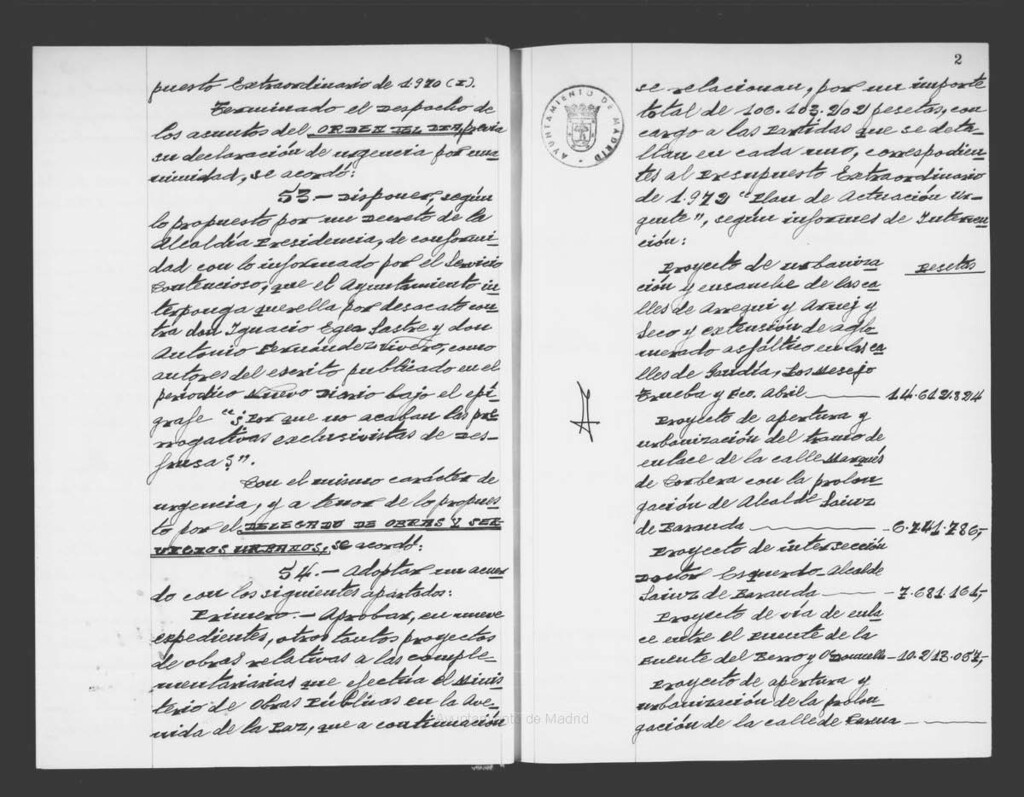 puesto Extraordinario de 1.970 (I).
Terminado el Despacho de
los asuntos del ORDEN DEL DIA, previa
su declaración de urgencia por una
nimidad, se acordó:
53.- Disponer, según
lo propuesto por un Decreto de la
Alcaldía Presidencia, de conformi_
dad con lo informado por el Servicio
Contencioso, que el Ayuntamiento in_
terponga querella por desacato con_
tra don Ignacio Egea Sastre y don
Antonio Fernández Vivero, como
autores del escrito publicado en el
periódico Nuevo Diario bajo el epí_
grafe "¿Por que no acaban las pre_
rrogativas exclusivistas de Des_
frusa?".
Con el mismo carácter de
urgencia, y a tenor de lo propues_
to por el DELEGADO DE OBRAS Y SER_
VICIOS URBANOS, se acordó:
54.- Adoptar un acuer_
do con los siguientes apartados:
Primero.- Aprobar, en nueve
expedientes, otros tantos proyectos
de obras relativas a las comple_
mentariarias que efectúa el Minis_
terio de Obras Públicas en la Ave_
nida de la Paz, que a continuación
2
AYUNTAMIENTO DE MADRID
se relacionan, por un importe
total de 100.103.202 pesetas, con
cargo a las Partidas que se deta_
llan en cada uno, correspodien_
tes al Presupuesto Extraordinario
de 1.972 "Plan de Actuación Ur_
gente", según informes de Interven_
ción:
Pesetas
Proyecto de urbaniza
ción y ensanche de las ca
lles de Arregui y Aruej y
Seco y extensión de aglo_
merado asfáltico en las ca
lles de Gandía, Los Mesejo
Trueba y Fco. Abril 14.612.824
Proyecto de apertura y
urbanización del tramo de
enlace de la calle Marqués
de Corbera con la prolon_
gación de Alcalde Sainz
de Baranda 6.741.786,-
Proyecto de intersección
Doctor Esquerdo-Alcalde
Sainz de Baranda 7.681.161,-
Proyecto de vía de enla_
ce entre el Puente de la
Fuente del Berro y O'Donnell 10.213.051,-
Proyecto de apertura y
urbanización de la prolon_
gación de la calle de
Ayuntamiento de Madrid